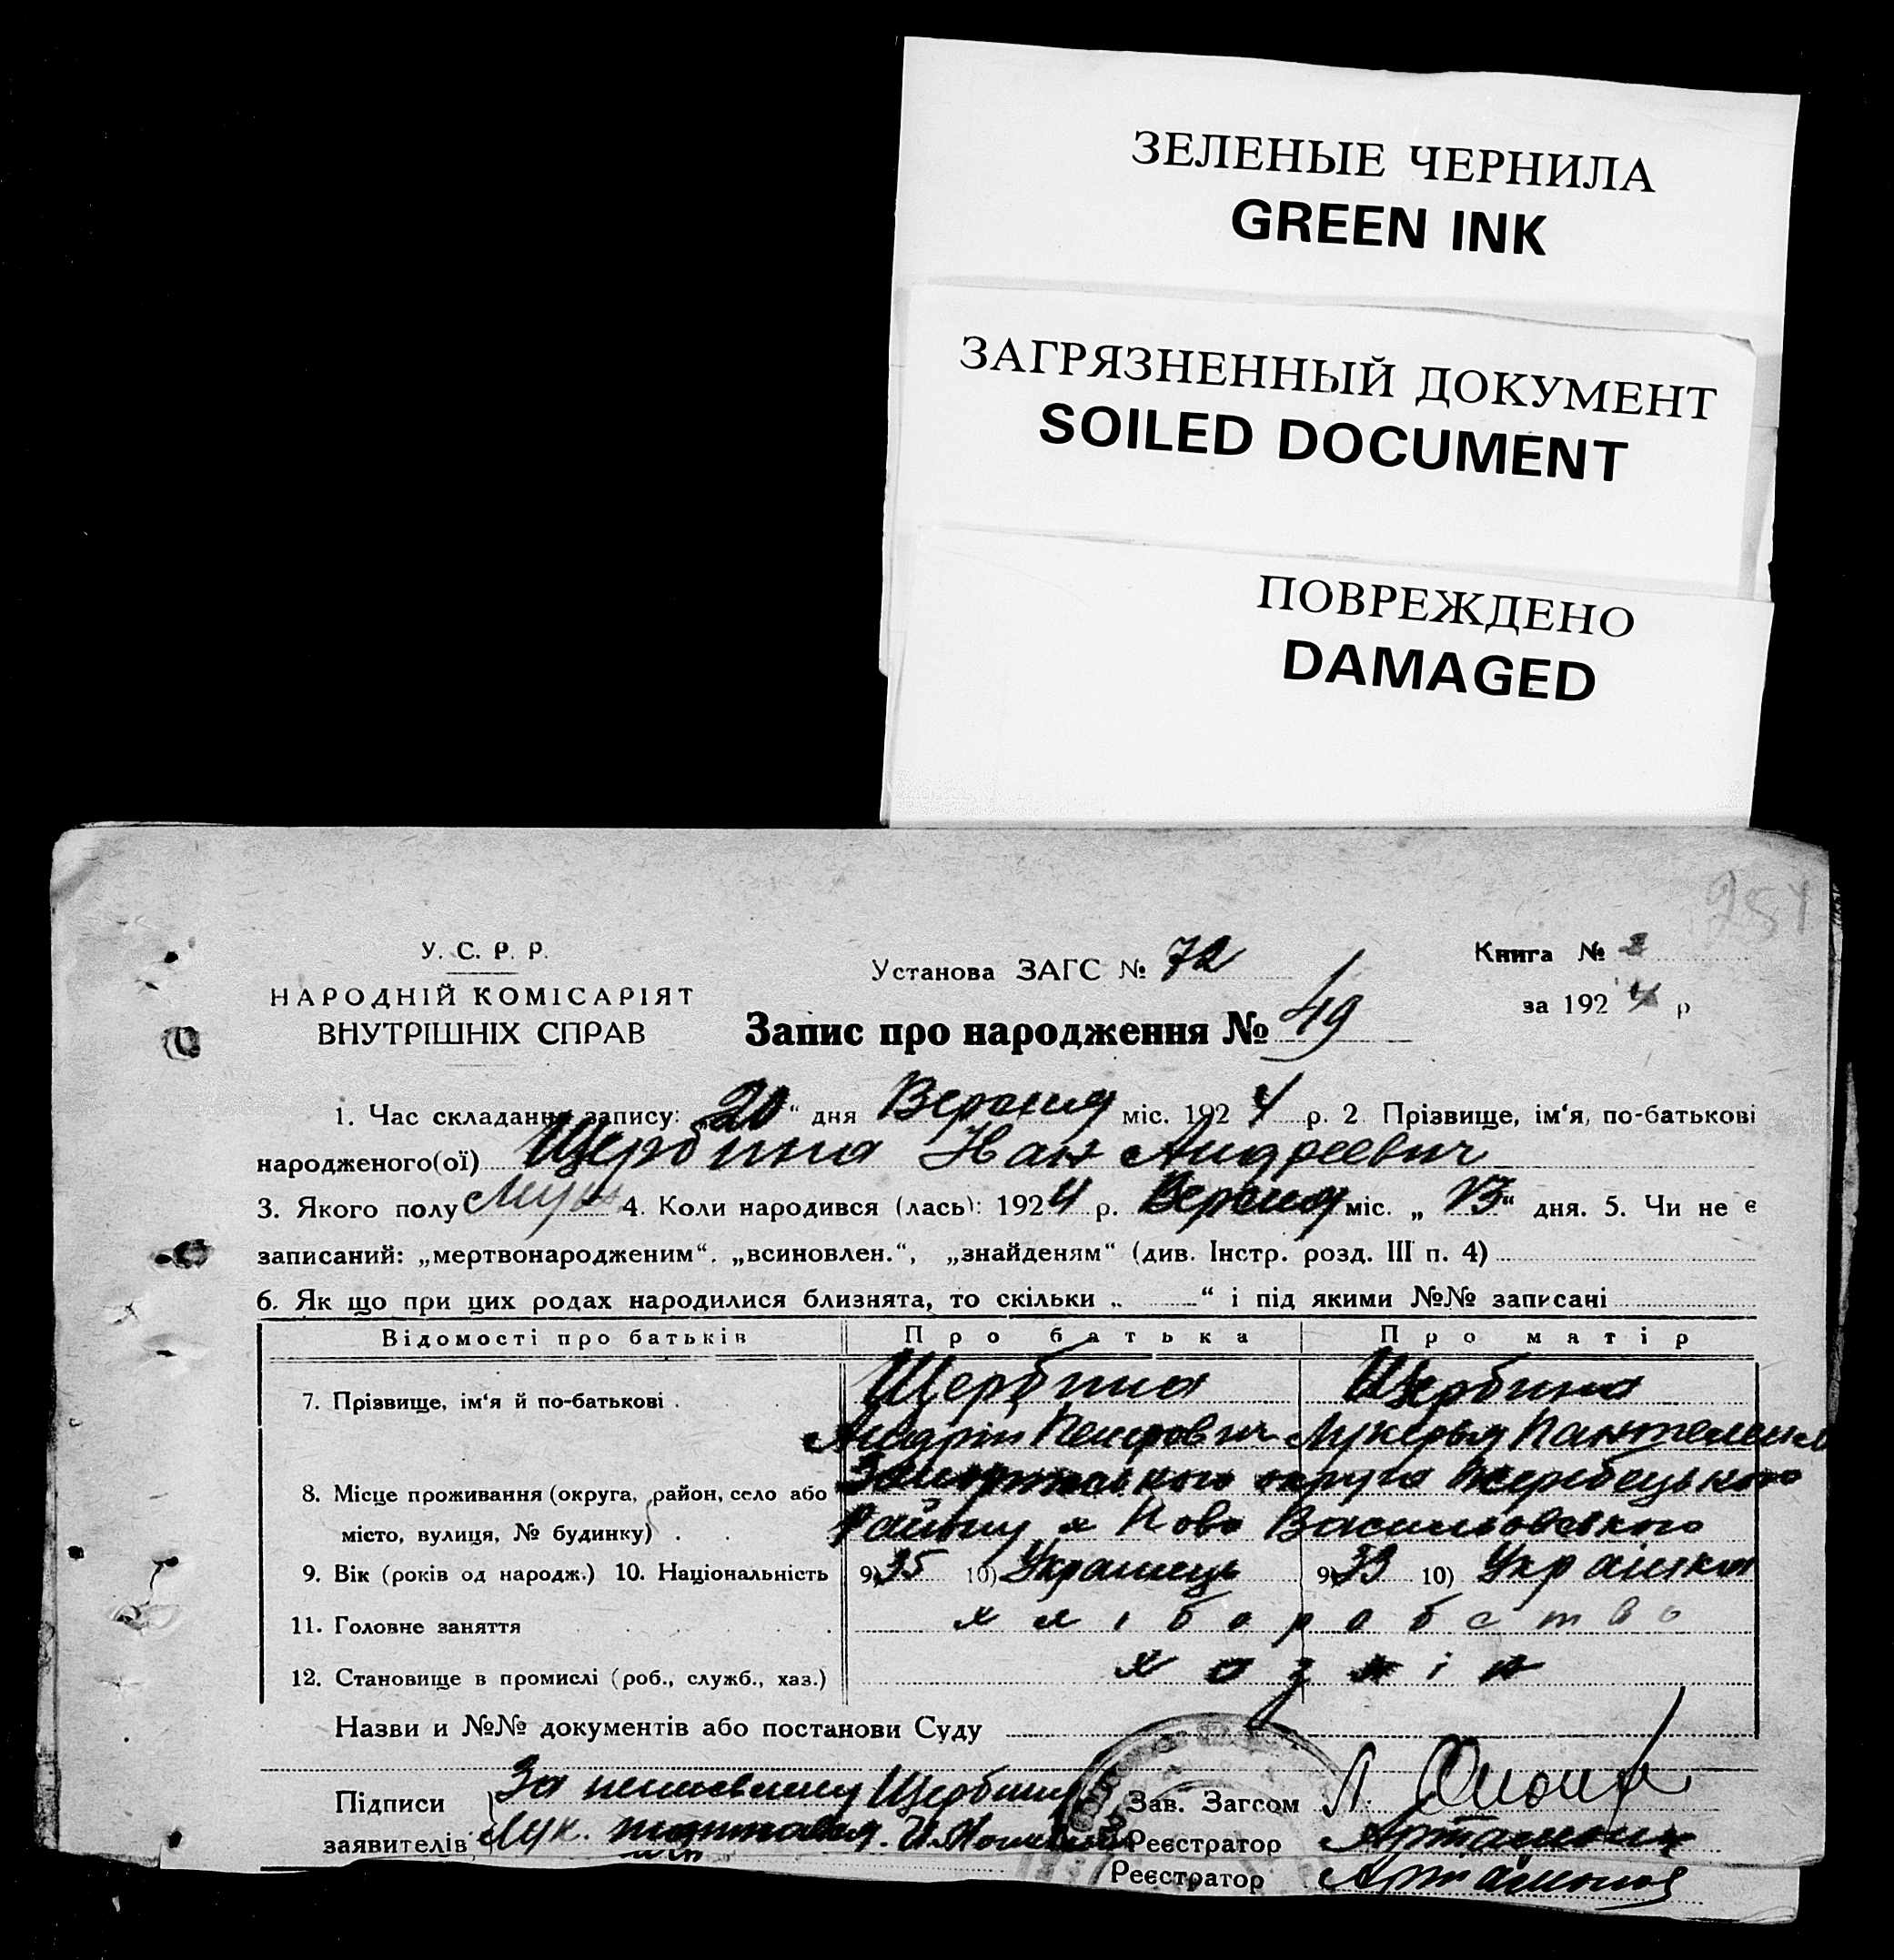 ЗЕЛЕНЫЕ ЧЕРНИЛА
GREEN INK
ЗАГРЯЗНЕННЫЙ ДОКУМЕНТ
SOILED DOCUMENT
ПОВРЕЖДЕНО
DAMAGED
254
У. С. Р. Р.
НАРОДНІЙ КОМІСАРІЯТ
ВНУТРІШНІХ СПРАВ
Установа ЗАГС № 72
Книга № 2
за 1924 р
Запис про народження № 49
1. Час складання запису: „20“ дня Вересня міс. 1924 р. 2. Прізвище, ім‘я, по-батькові
народженого(ої) Щербина Іван Андреевич
3. Якого полу Муж 4. Коли народився (лась): 1924 р. Вересня міс. „13“ дня. 5. Чи не є
записаний: „мертвонародженим“. „всиновлен.“, „знайденям“ (див. Інстр. розд. III п. 4)
6. Як що при цих родах народилися близнята, то скільки „ “ і під якими №№ записані
Відомості про батьків Про батька Про матір
7. Прізвище, ім‘я й по-батькові . Щербина Щербина
Андрій Петрович Лукерья
8. Місце проживання (округа, район, село або Запорізського округа Жеребецького
місто, вулиця, № будинку) . Району Ново Васильовського
9. Вік (років од народж.) 10. Національність 9) 35 10) Українець 9) 33 10) Українка
11. Головне заняття хліборобство
12. Становище в промислі (роб., служб., хаз.) хозяін
Назви и №№ документів або постанови Суду
Підписи За неписьмену Щербину Зав. Загсом
заявителів Лук. Реєстратор Артамонов
Реєстратор Артамонов